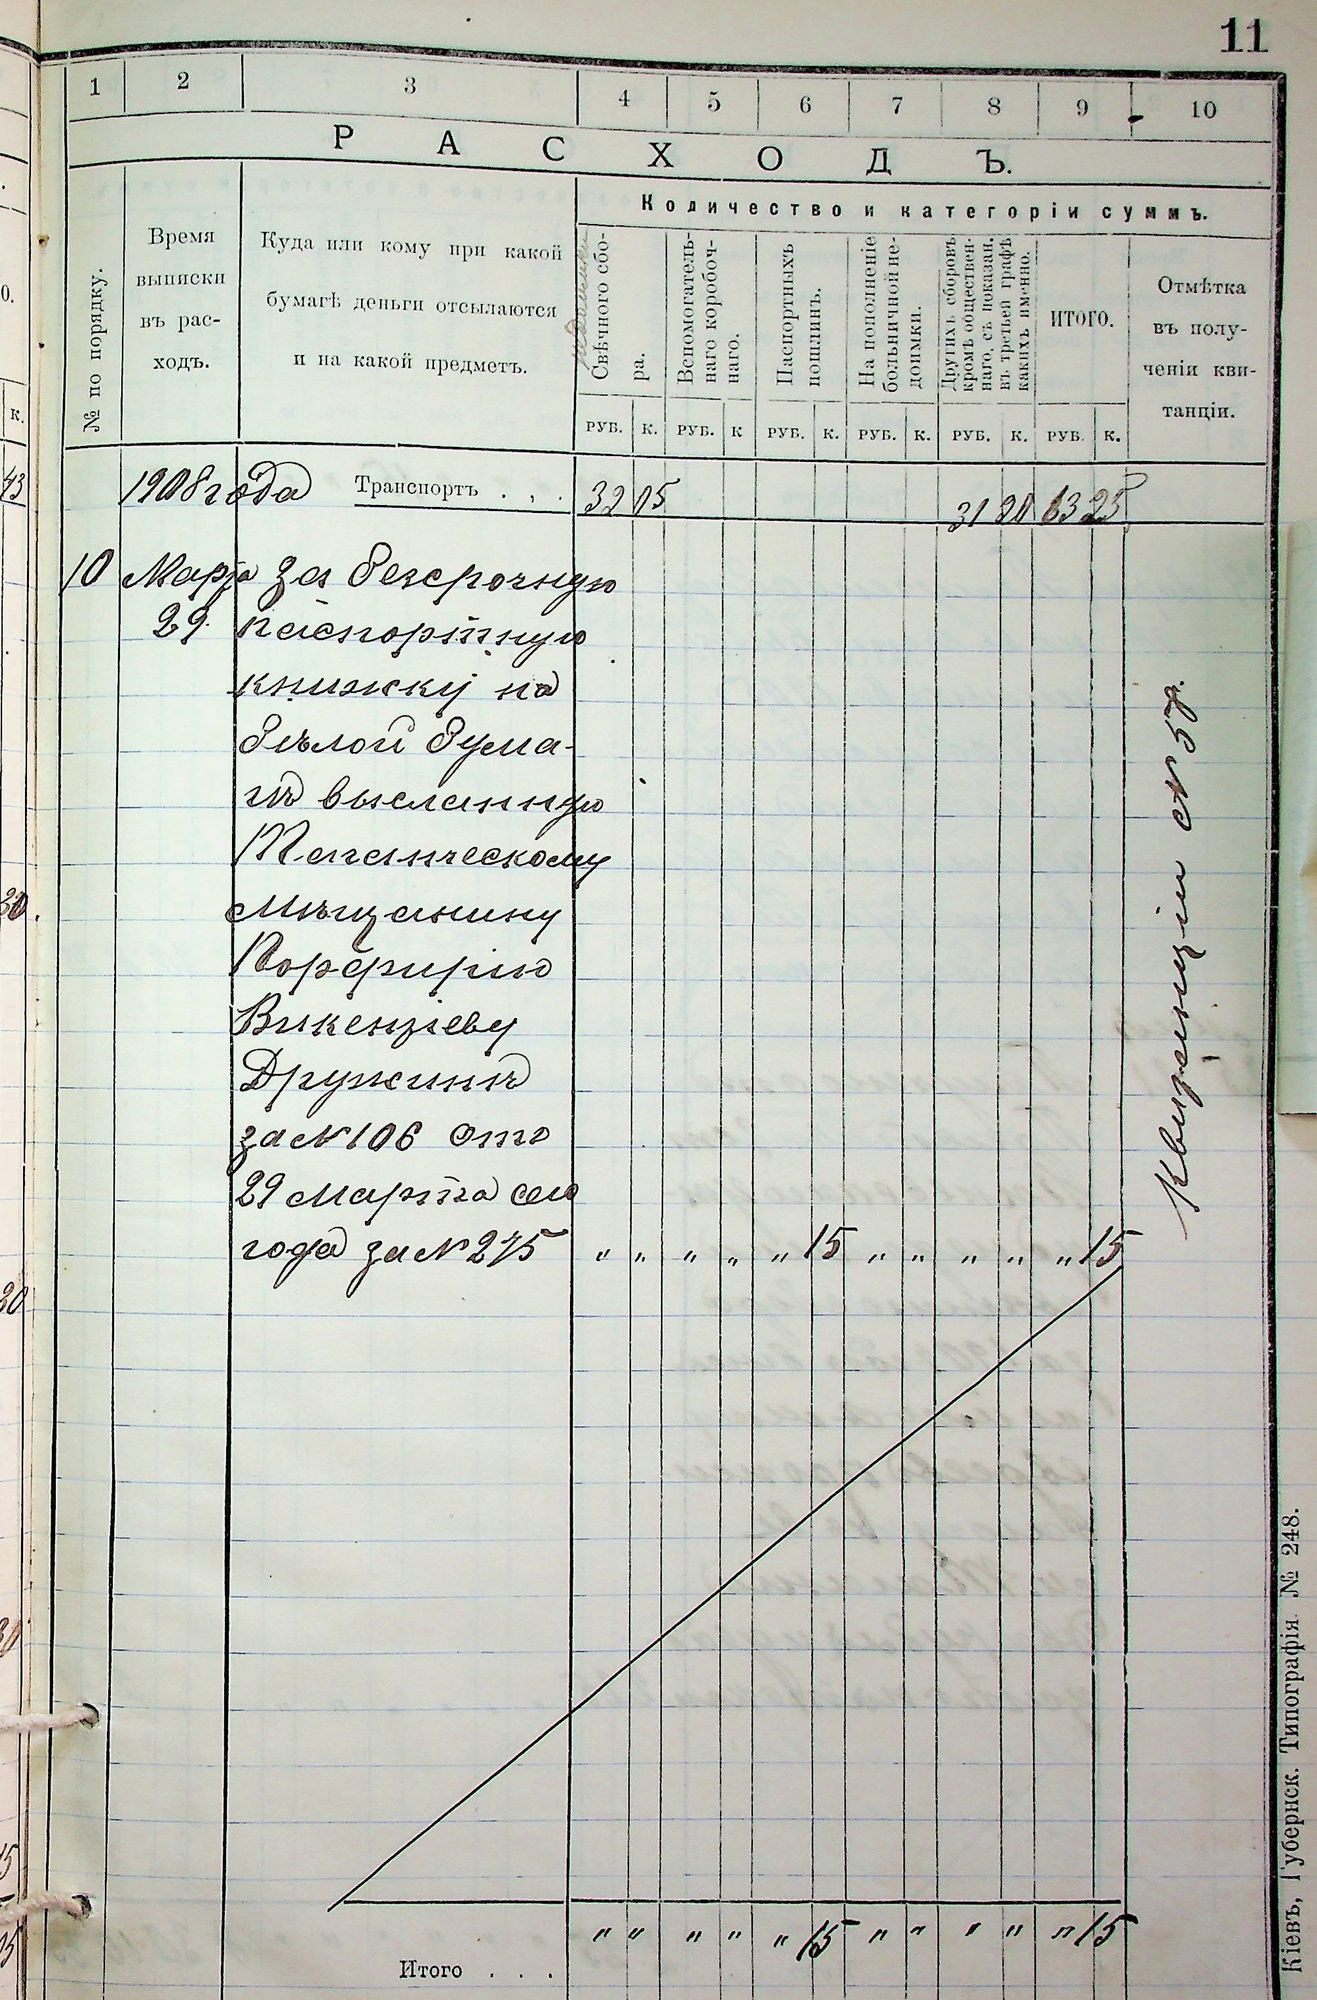 11
1 2 3 4 5 6 7 8 9 10
РАСХОДЪ.
Количество и категоріи суммъ.
№ по порядку.
Время
выписки
въ рас-
ходъ.
Куда или кому при какой
бумагѣ деньги отсылаются
и на какой предметъ.
Свѣчного сбо-
ра.
Вспомогатель-
наго коробоч-
наго.
Паспортныхъ
пошлинъ.
На пополненіе
больничной не-
доимки.
Другихъ сборовъ
кромѣ обществен-
наго, съ показан.
въ третьей графѣ
какихъ именно.
ИТОГО.
Отмѣтка
въ полу-
ченіи кви-
танціи.
РУБ. К. РУБ. К РУБ. К. РУБ. К. РУБ. К. РУБ. К.
1908 года Транспортъ . , . 32 05 31 20 63 25
10 Марта За безсрочную
29 паспортную
книжку на
бѣлой бума-
гѣ высланную
Таганческому
мѣщанину
Порфирію
Викентіеву
Дружинѣ
за № 106 отъ
29 Марта сего
года за № 275 „ „ „ „ „ 15 „ „ „ „ „ 15
Квитанціи № 57.
„ „ „ „ „ 15 „ „ „ „ „ 15
Итого . . .
Кіевъ, Губернск. Типографія № 248.